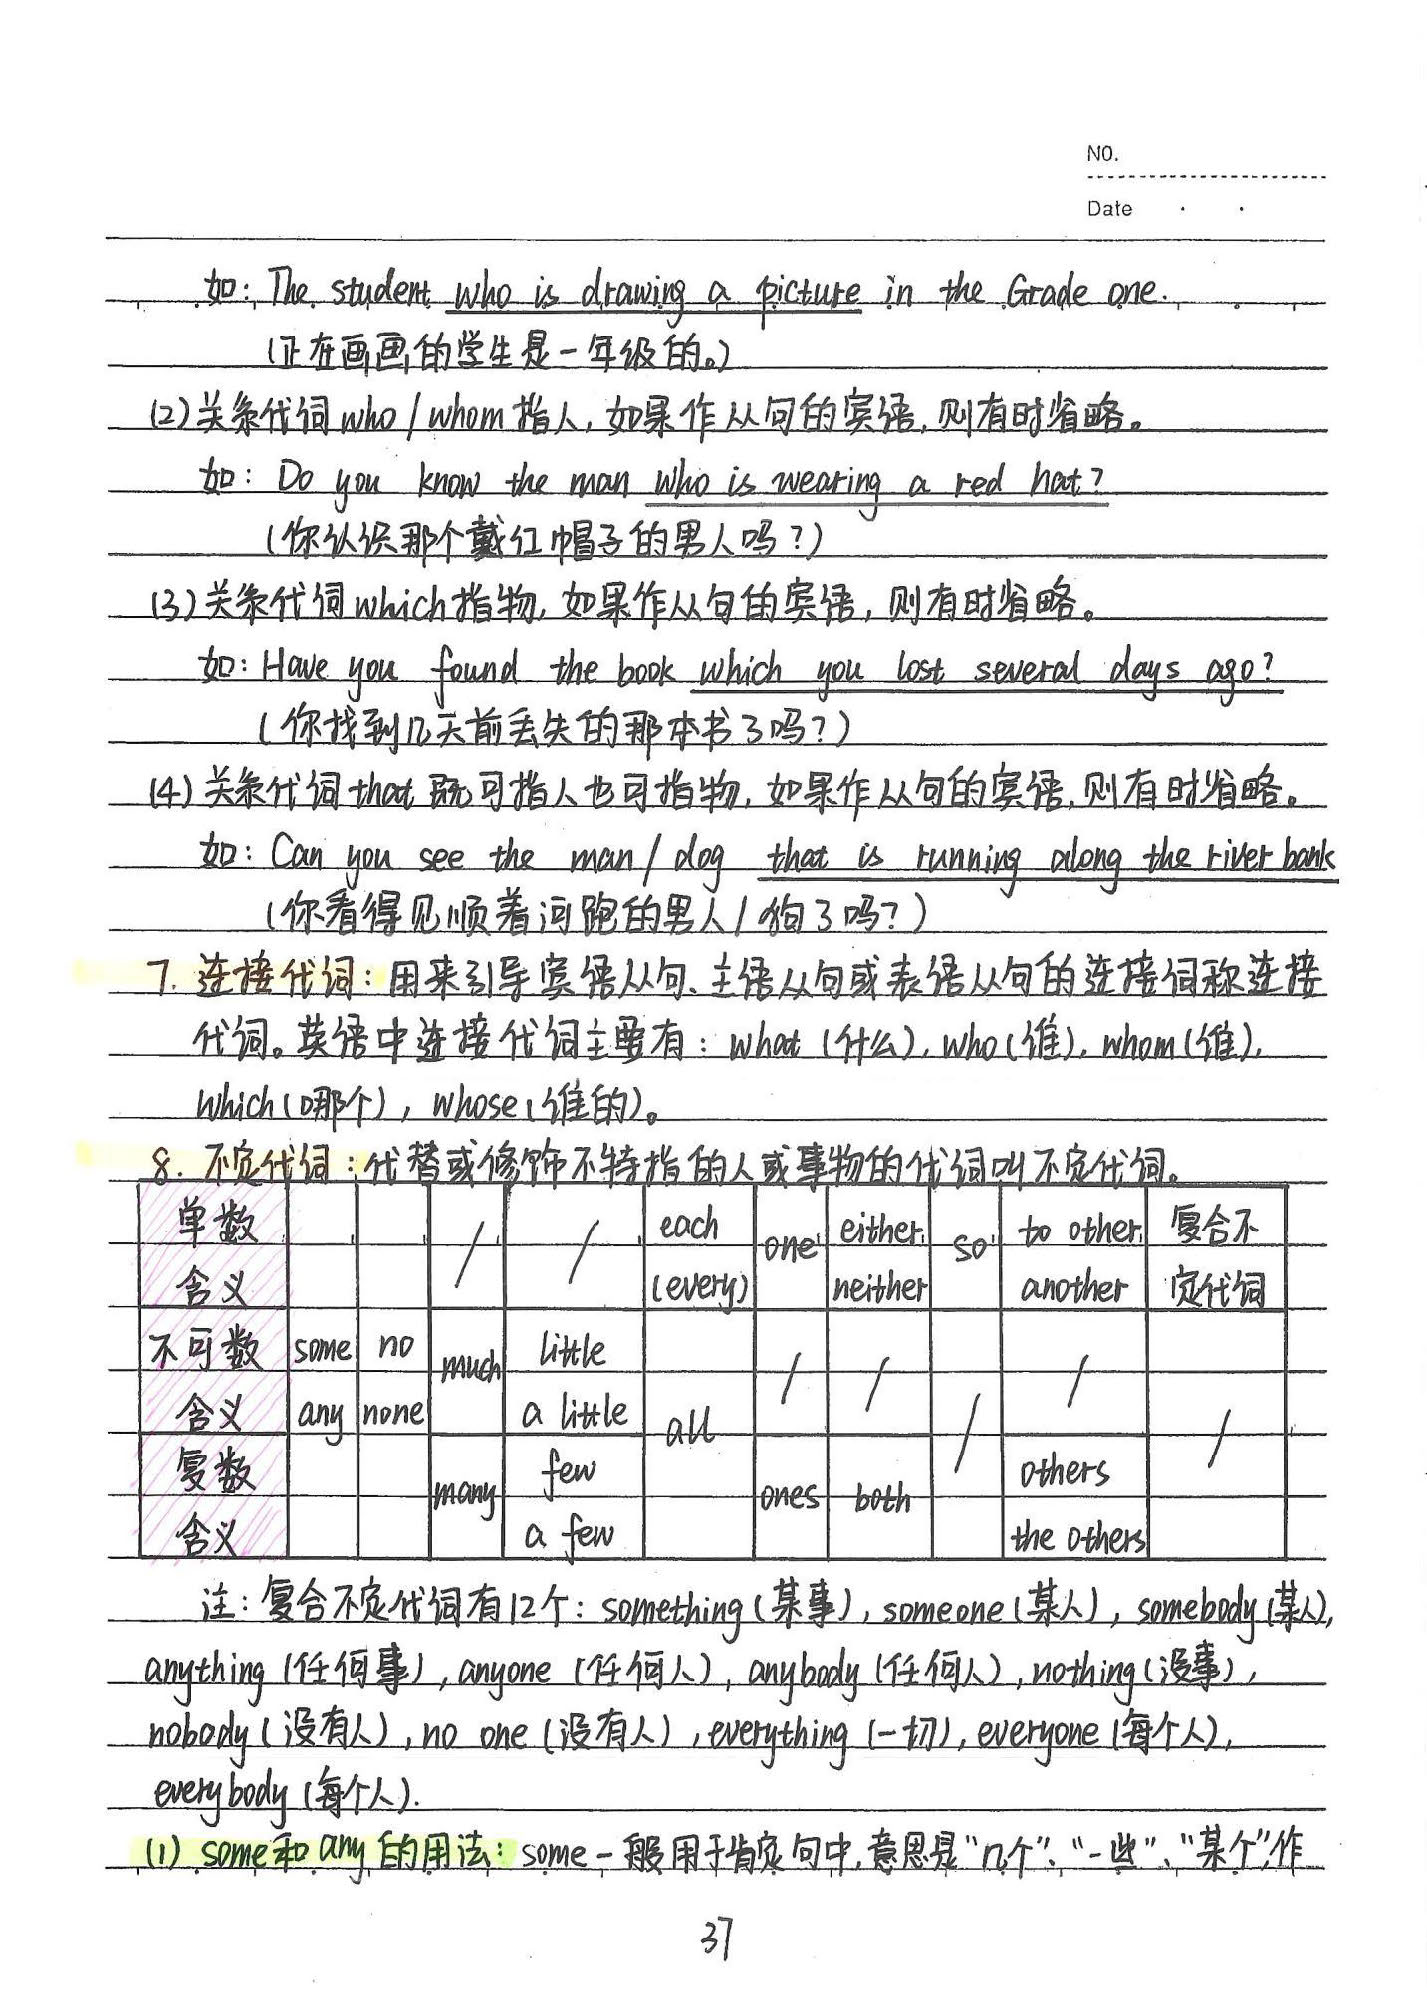 NO.
Date
如: The student who is drawing a picture in the Grade one.
(正在画画的学生是一年级的。)
(2)关系代词who/whom指人,如果作从句的宾语,则有时省略。
如: Do you know the man who is wearing a red hat?
(你认识那个戴红帽子的男人吗?)
(3)关系代词which指物,如果作从句的宾语,则有时省略。
如: Have you found the book which you lost several days ago?
(你找到几天前丢失的那本书了吗?)
(4)关系代词that既可指人也可指物,如果作从句的宾语,则有时省略。
如: Can you see the man/dog that is running along the river bank
(你看得见顺着河跑的男人/狗了吗?)
7. 连接代词:用来引导宾语从句、主语从句或表语从句的连接词称连接
代词。英语中连接代词主要有: what (什么), who(谁), whom(谁),
which(哪个), whose(谁的)。
8. 不定代词:代替或修饰不特指的人或事物的代词叫不定代词。
单数 / / each one either so to other 复合不
含义 (every) neither another 定代词
不可数 some no much little all / / / / /
含义 any none a little
复数 many few ones both others
含义 a few the others
注:复合不定代词有12个: something(某事), someone(某人), somebody(某人),
anything (任何事), anyone (任何人), anybody (任何人), nothing(没事),
nobody(没有人), no one(没有人), everything (一切), everyone(每个人),
everybody(每个人).
(1) some和any的用法: some一般用于肯定句中,意思是"几个"、"一些"、"某个"作
37